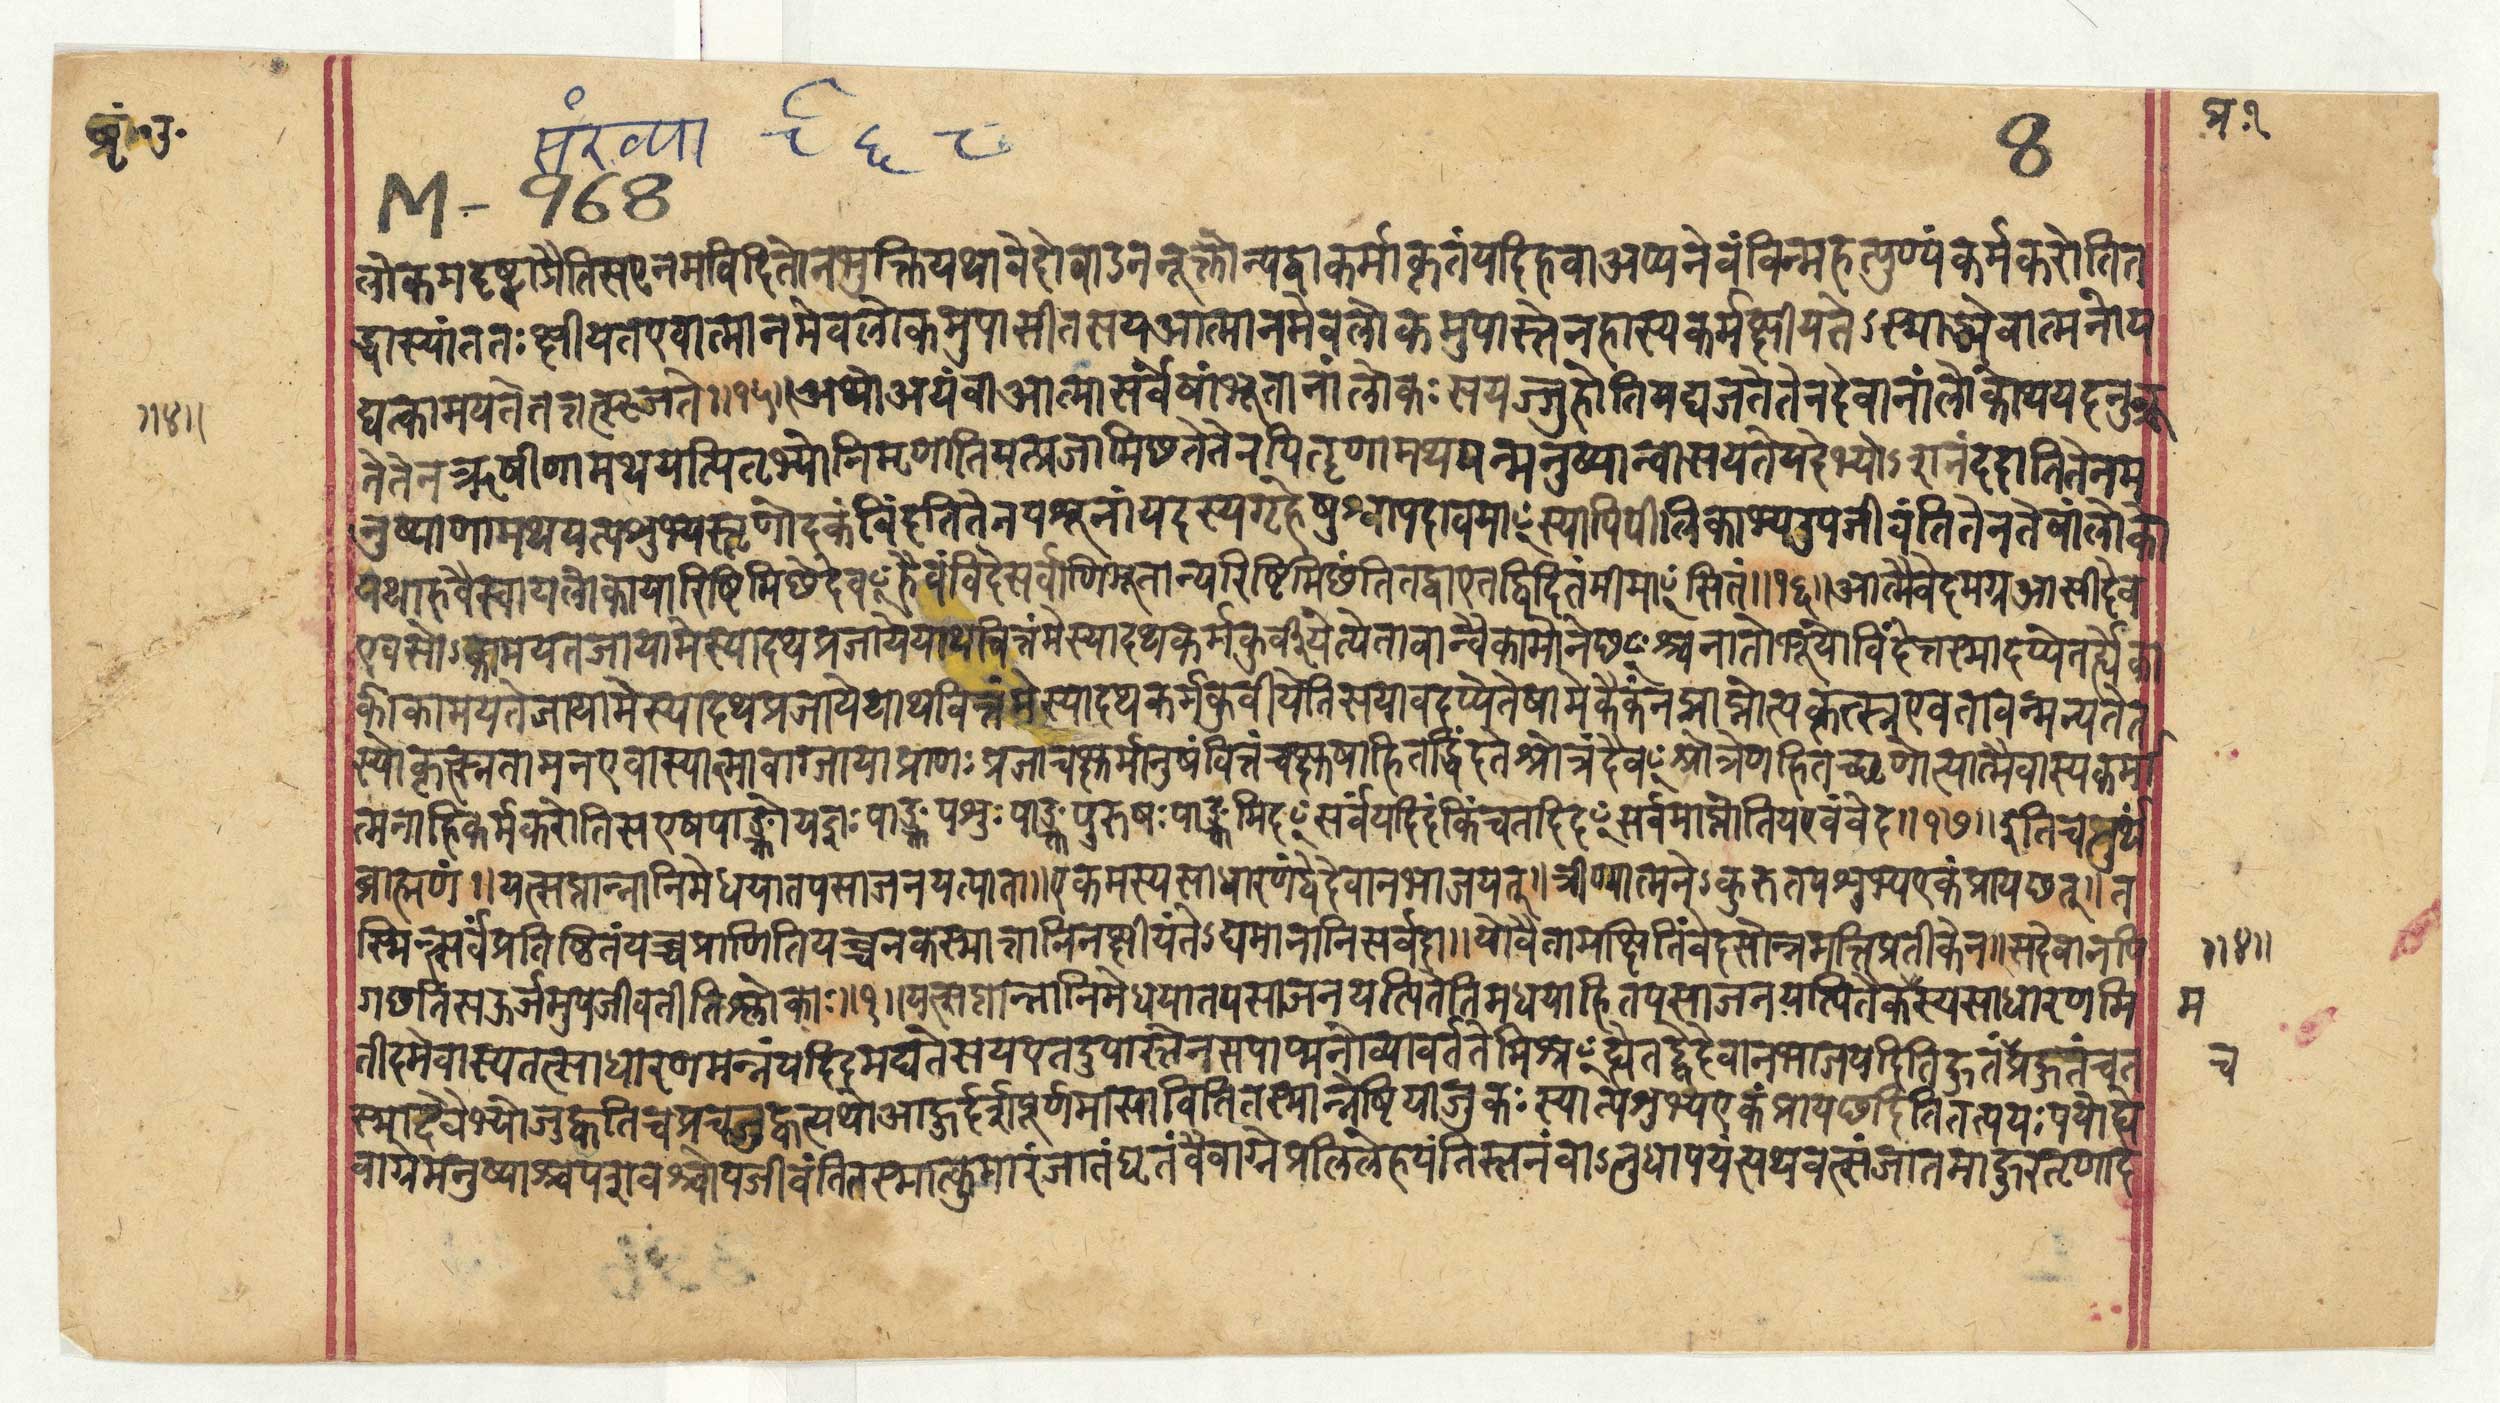 बृं.उ.
संख्या ९६८
8
प्र.१
M-968
लोकमदृष्ट्वाप्रैतिसएनमविदितोनभुनक्तियथावेदोवाऽननूक्तोन्यद्वाकर्माकृतंयदिहवाअप्यनेवंविन्महत्पुण्यंकर्मकरोतित
द्धास्यांततःक्षीयेतएवात्मानमेवलोकमुपासीतसयआत्मानमेवलोकमुपास्तेनहास्यकर्मक्षीयतेऽस्माद्ध्येवात्मनोय
द्यत्कामयतेतत्तत्सृजते॥१५॥अथोअयंवाआत्मासर्वेषांभूतानांलोकःसयज्जुहोतियद्यजतेतेनदेवानांलोकोथयदनुब्रू
॥४॥
तेतेनऋषीणामथयत्पितृभ्योनिपृणातियत्प्रजामिछतेतेनपितॄणामथयन्मनुष्यान्वासयतेयदेभ्योऽशनंददातितेनम
नुष्याणामथयत्पशुभ्यस्तृणोदकंविंदतितेनपशूनांयदस्यगृहेषुश्वापदावयाꣳस्यापिपीलिकाभ्यउपजीवंतितेनतेषांलोको
यथाहवैस्वायलोकायारिष्टिमिछेदेवꣳहैवंविदेसर्वाणिभूतान्यरिष्टिमिछंतितद्वाएतद्विदितंमीमाꣳसितं॥१६॥आत्मैवेदमग्रआसीदेक
एवसोऽकामयतजायामेस्यादथप्रजायेयाथवित्तंमेस्यादथकर्मकुर्वीयेत्येतावान्वैकामोनेछꣳश्चनातोभूयोविंदेत्तस्मादप्येतर्ह्येका
कीकामयतेजायामेस्यादथप्रजायेयाथवित्तंमेस्यादथकर्मकुर्वीयेतिसयावदप्येतेषामेकैकंनप्राप्नोत्यकृत्स्नएवतावन्मन्यतेत
स्योकृत्स्नतामनएवास्यात्मावाग्जायाप्राणःप्रजाचक्षुर्मानुषंवित्तंचक्षुषाहितद्विंदतेश्रोत्रंदैवꣳश्रोत्रेणहितच्छृणोत्यात्मैवास्यकर्मा
त्मनाहिकर्मकरोतिसएषपाङ्क्तोयज्ञःपाङ्क्तःपशुःपाङ्क्तःपुरुषःपाङ्क्तमिदꣳसर्वंयदिदंकिंचतदिदꣳसर्वमाप्नोतियएवंवेद॥१७॥इतिचतुर्थं
ब्राह्मणं॥यत्सप्तान्नानिमेधयातपसाजनयत्पिता॥एकमस्यसाधारणंद्वेदेवानभाजयत्॥त्रीण्यात्मनेऽकुरुतपशुभ्यएकंप्रायछत्॥त
स्मिन्सर्वंप्रतिष्ठितंयच्चप्राणितियच्चनकस्मात्तानिनक्षीयंतेऽद्यमानानिसर्वदा॥योवैतामक्षितिंवेदसोन्नमत्तिप्रतीकेन॥सदेवानपि
॥४॥
गछतिसऊर्जमुपजीवतीतिश्लोकाः॥१॥यत्सप्तान्नानिमेधयातपसाजनयत्पितेतिमेधयाहितपसाजनयत्पितैकस्यसाधारणमि
म
तीदमेवास्यतत्साधारणमन्नंयदिदमद्यतेसयएतदुपास्तेनसपाप्मनोव्यावर्ततेमिश्रꣳह्येतद्द्वेदेवानभाजयदितिहुतंप्रहुतंचत
च
स्माद्देवेभ्योजुह्वतिचप्रचजुह्वत्यथोआहुर्दर्शपूर्णमासावितितस्मान्नेष्टियाजुकःस्यात्पशुभ्यएकंप्रायछदितितत्पयःपयोह्ये
वाग्रेमनुष्याश्चपशवश्चोपजीवंतितस्मात्कुमारंजातंघृतंवैवाग्रेप्रतिलेहयंतिस्तनंवाऽनुधापयंत्यथवत्संजातमाहुरतृणाद